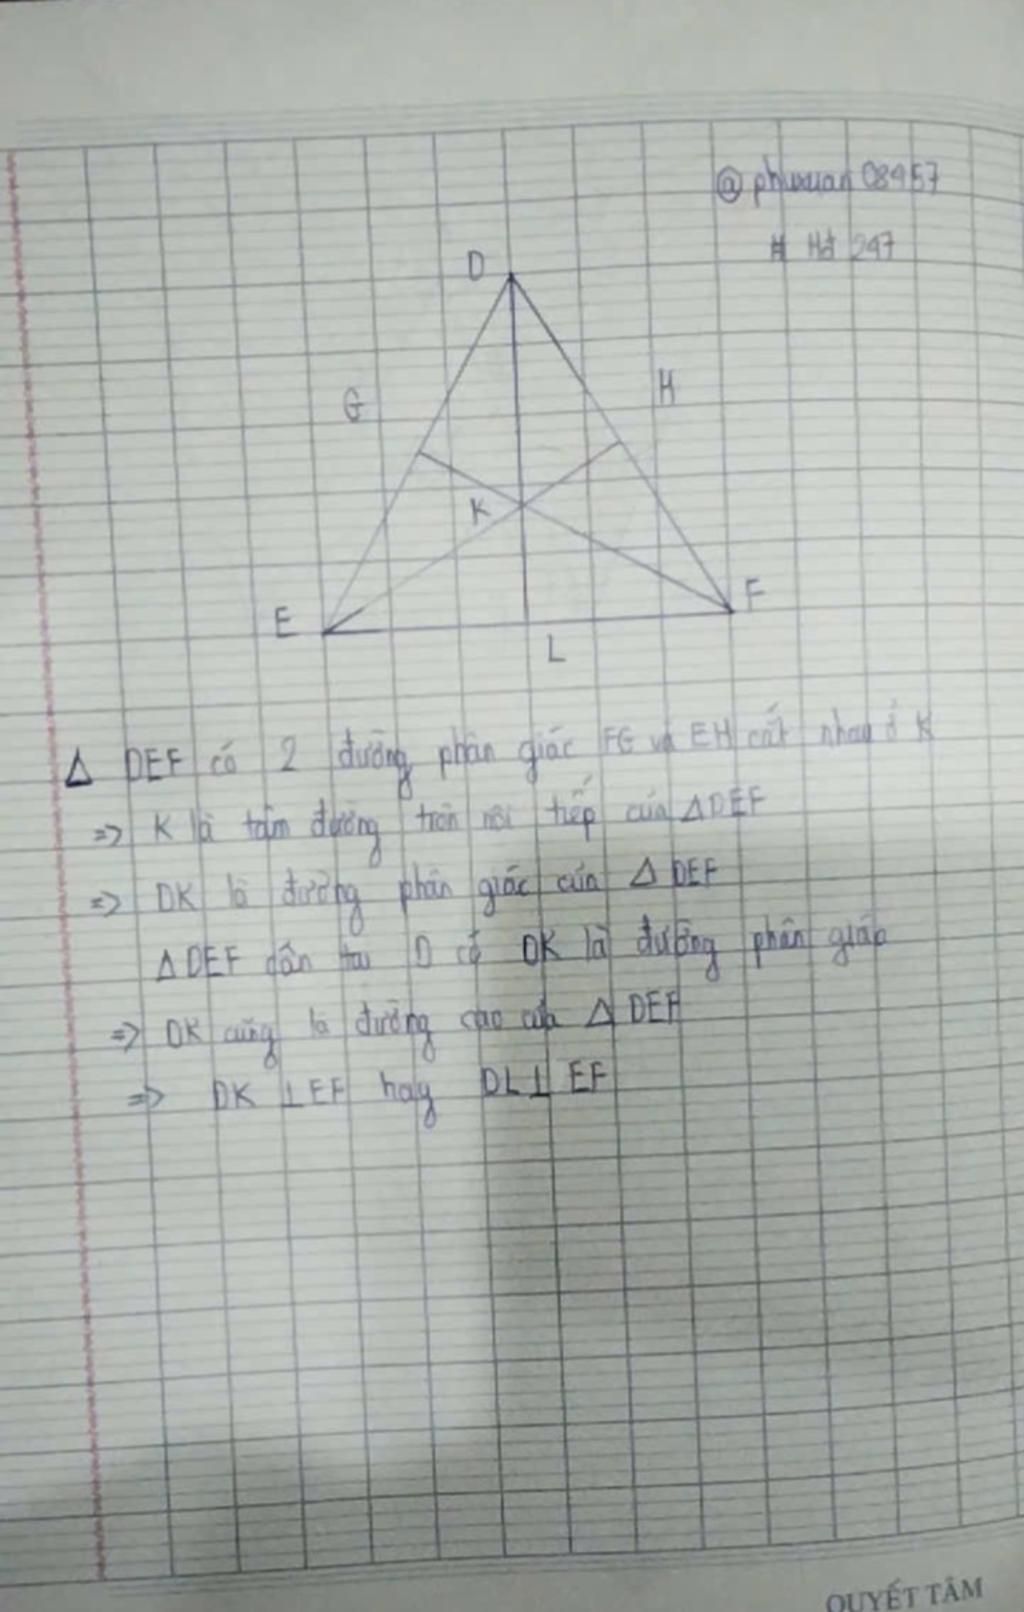 @ phuxuan 08957
# Hđ 247
D
G
H
K
E
F
L
Δ DEF có 2 đường phân giác FG và EH cắt nhau ở K
=> K là tâm đường tròn nội tiếp của Δ DEF
=> DK là đường phân giác của Δ DEF
Δ DEF cân tại D có DK là đường phân giác
=> DK cũng là đường cao của Δ DEF
=> DK ⊥ EF hay DL ⊥ EF
QUYẾT TÂM